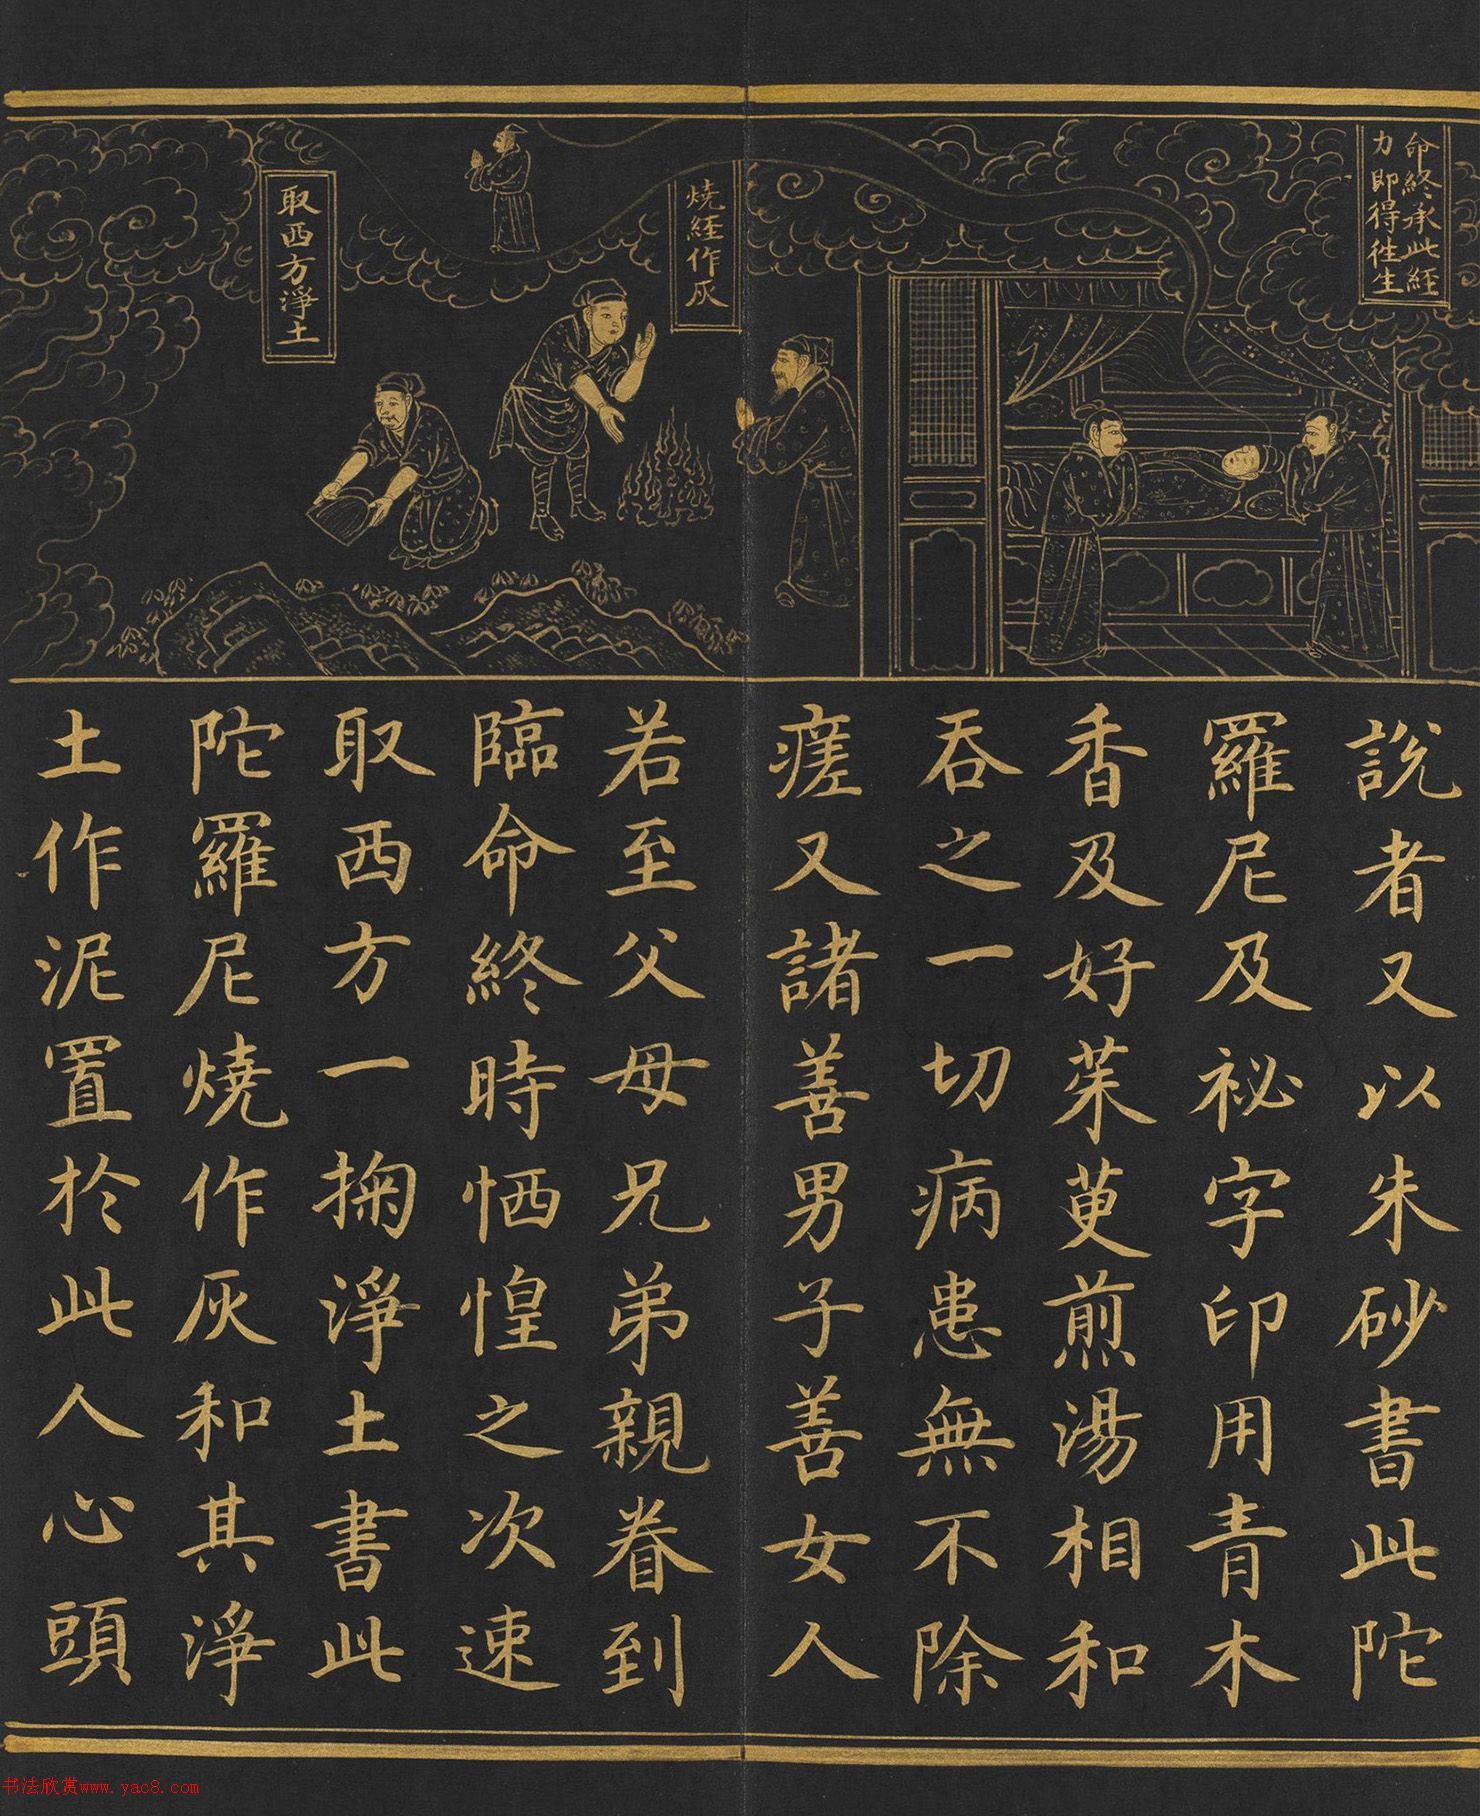 命終承此經
力即得徃生
燒經作灰
取西方淨土
說者又以朱砂書此陀
羅尼及祕字印用青木
香及好茱萸煎湯相和
吞之一切病患無不除
瘥又諸善男子善女人
若至父母兄弟親眷到
臨命終時恓惶之次速
取西方一掬淨土書此
陀羅尼燒作灰和其淨
土作泥置於此人心頭
书法欣赏www.yac8.com